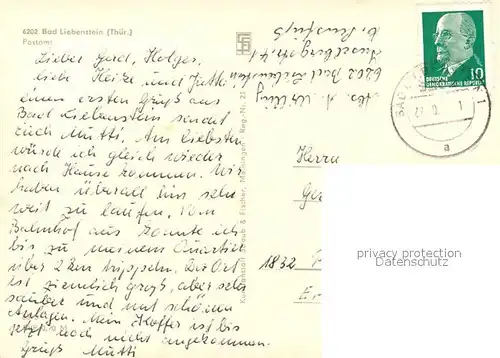 6202 Bad Liebenstein (Thür.)
Postamt
Lieber Gerd, Holger,
liebe Heike und Jutti
einen ersten Gruß aus
Bad Liebenstein sendet
Euch Mutti. Am Liebsten
würde ich gleich wieder
nach Hause kommen. Wir
haben überall hin sehr
weit zu laufen. Vom
Bahnhof aus konnte ich
bis zu meinem Quartier
über 2 km trippeln. Der Ort
ist ziemlich groß, aber sehr
sauber und mit schönen
Anlagen. Mein Koffer ist bis
jetzt noch nicht angekommen.
Gruß Mutti
Straub & Fischer, Meiningen
Reg.-Nr.
6202 Bad Liebenstein
DEUTSCHE
DEMOKRATISCHE REPUBLIK
10
BAD
1
a
Herrn
1832
privacy protection
Datenschutz